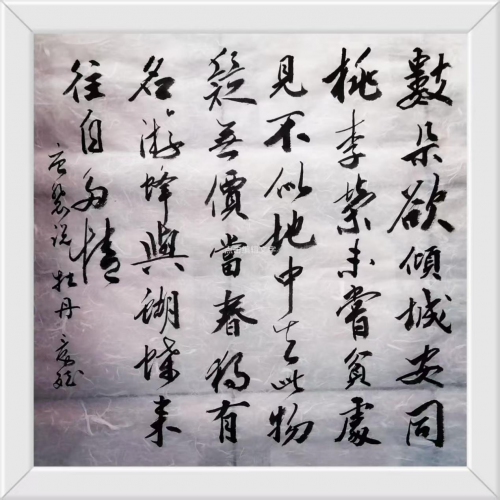 數朵欲傾城安同
桃李榮未嘗貧處
見不似地中生此物
疑無價當春獨有
名游蜂與蝴蝶来
往自多情
唐裴说牡丹